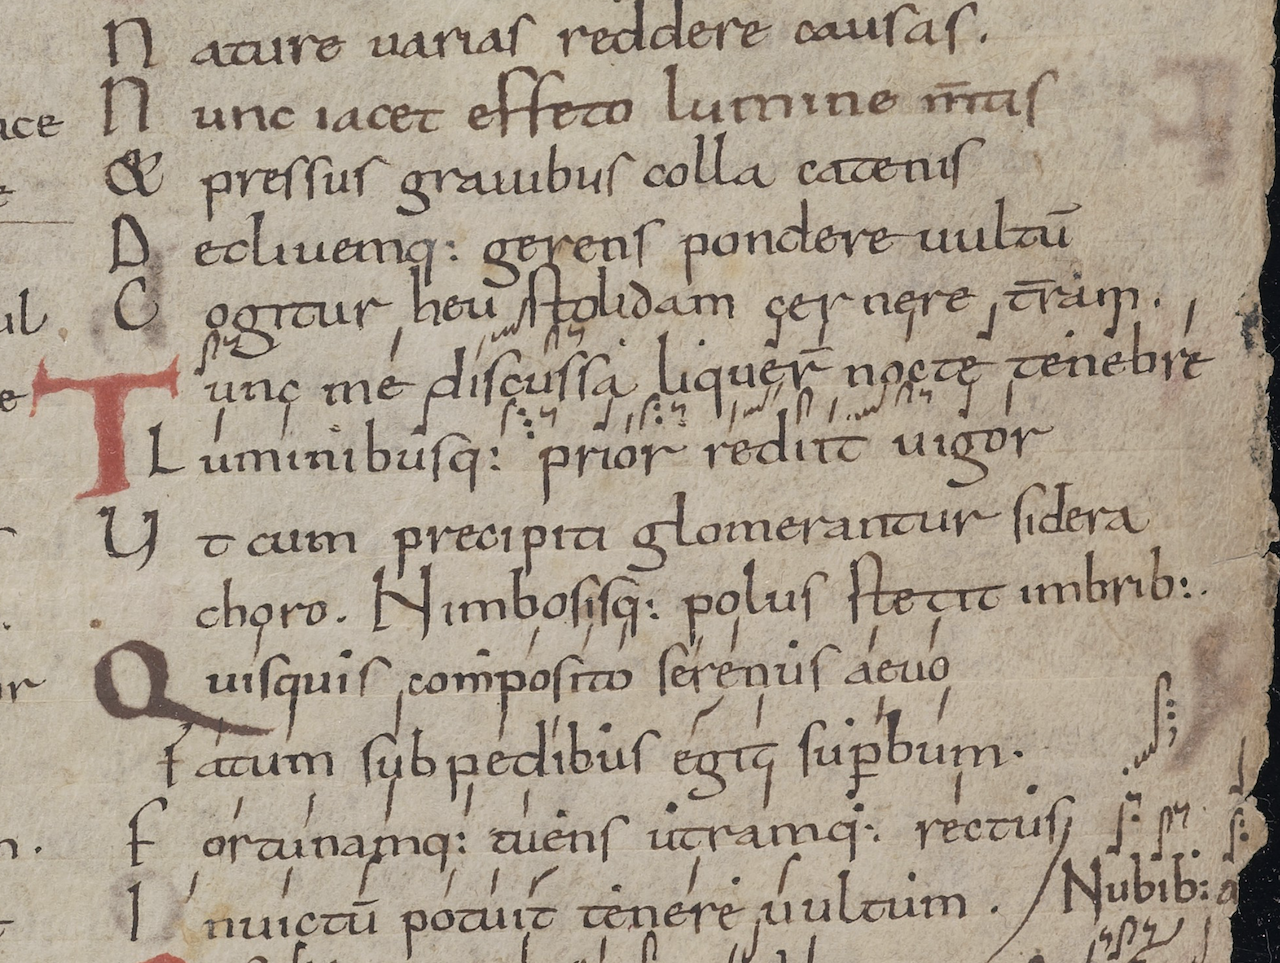 Nature varias reddere causas.
Nunc iacet effeto lumine m̄tis
& pressus gravibus colla catenis
Decliuemq: gerens pondere uultū
Cogitur heu stolidam cernere t̄ram.
Tunc me discussa liquer̄ nocte tenebre
Luminibusq: prior rediit uigor
Ut cum precipiti glomerantur sidera
choro. Nimbosisq: polus stetit imbrib:.
Quisquis composito serenus aeuo
Fatum sub pedibus egit suṗbum.
Fortunamq: tuens utramq: rectus
Inuictū potuit tenere uultum. Nubib: